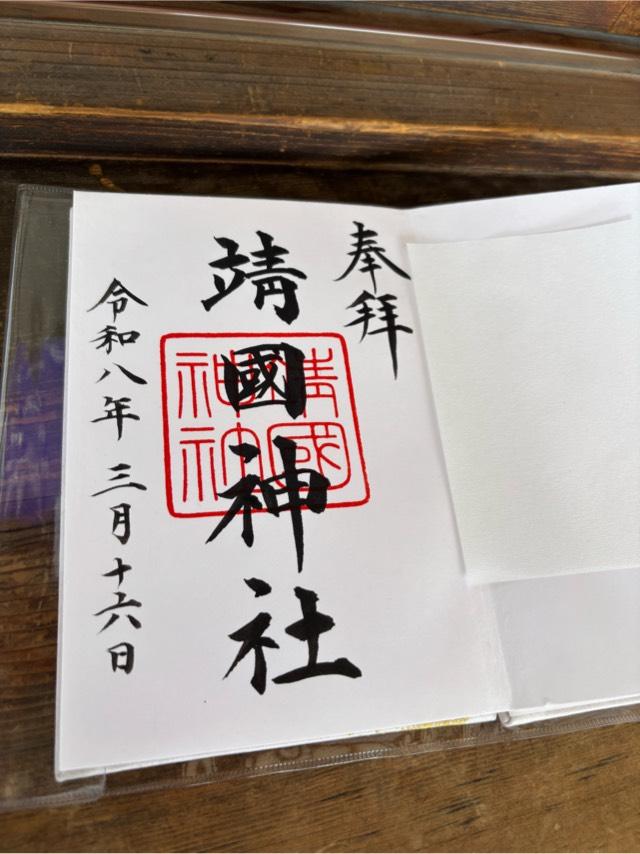 奉拝
靖國神社
靖國神社
令和八年三月十六日